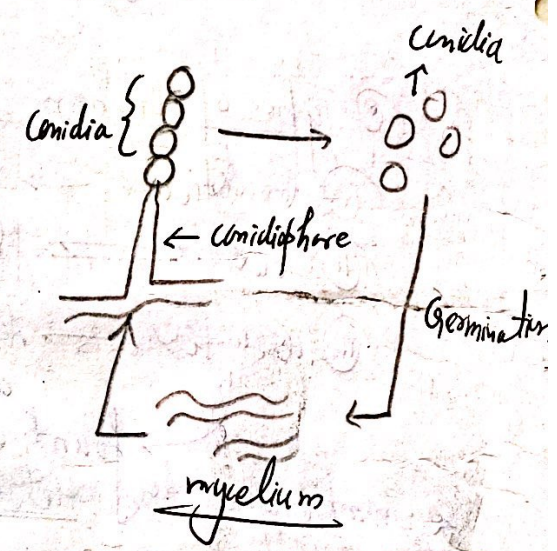 Conidia
Conidia
Conidiophore
Germination
mycelium